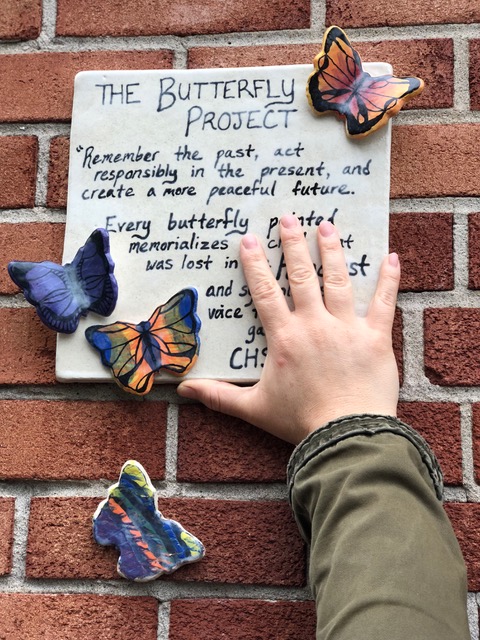 THE BUTTERFLY
PROJECT
"Remember the past, act
responsibly in the present, and
create a more peaceful future.
Every butterfly painted
memorializes
was lost in
and
CHS